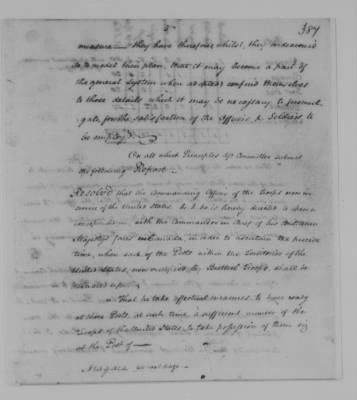 387
measure — they have therefore whilst they endeavor'd
so to model their plan, that it may become a part of
the general System when adopted, confined themselves
to those details which it may be necessary to promul-
gate for the satisfaction of the Officers & Soldiers to
be employed
On all which Principles yr Committee submit
the following Report.
Resolved that the commanding Officer of the Troops now in
service of the United States be & he is hereby directed to open a
correspondence with the Commander in Chief of his Britannic
Majesty's forces in Canada, in order to ascertain the precise
time, when each of the Posts within the territories of the
United States, now occupied by British Troops shall be
delivered up.
That he take effectual measures to have ready
at those Posts, at such time a sufficient number of the
Troops of the United States, to take possession of them viz
at the Post of —
Niagara